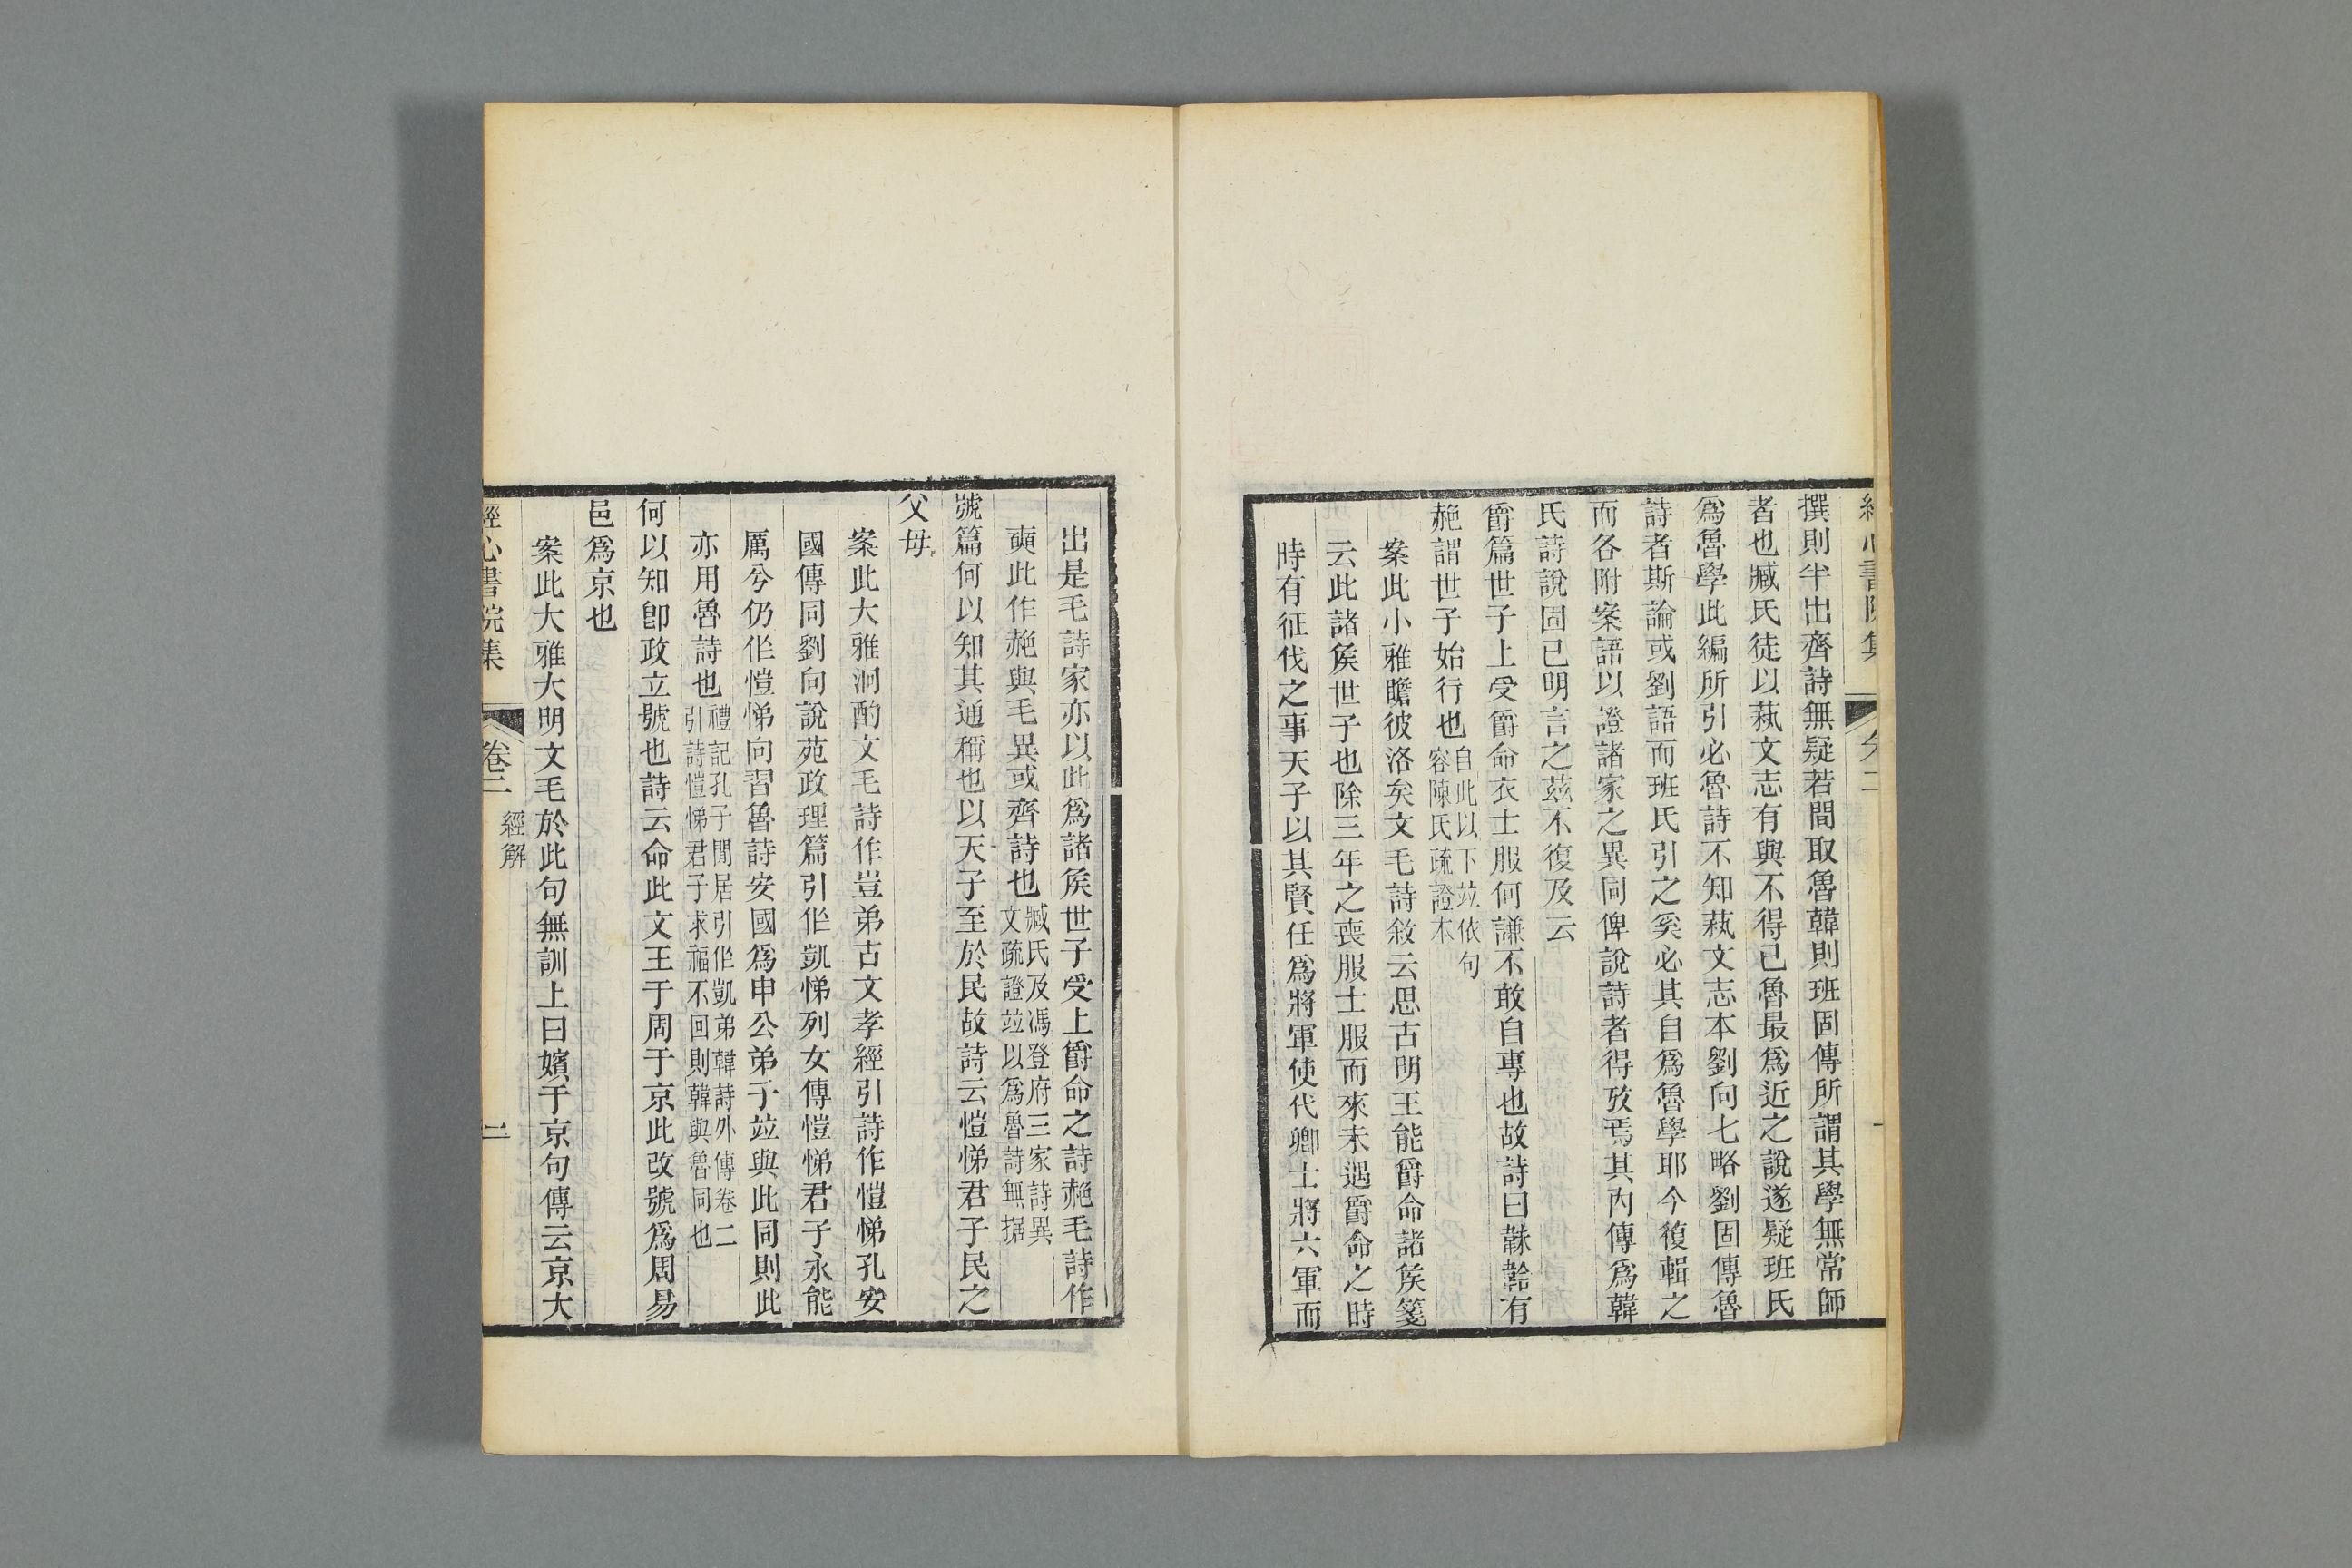 經心書院集
卷二
撰則半出齊詩無疑若間取魯韓則班固傳所謂其學無常師
者也臧氏徒以蓺文志有與不得已魯最爲近之說遂疑班氏
爲魯學此編所引必魯詩不知蓺文志本劉向七略劉固傳魯
詩者斯論或劉語而班氏引之奚必其自爲魯學耶今復輯之
而各附案語以證諸家之異同俾說詩者得攷焉其內傳爲韓
氏詩說固已明言之茲不復及云
爵篇世子上受爵命衣士服何謙不敢自專也故詩曰韎韐有
赩謂世子始行也自此以下竝依句
容陳氏疏證本
案此小雅瞻彼洛矣文毛詩敘云思古明王能爵命諸矦箋
云此諸矦世子也除三年之喪服士服而來未遇爵命之時
時有征伐之事天子以其賢任爲將軍使代卿士將六軍而
出是毛詩家亦以此爲諸矦世子受上爵命之詩赩毛詩作
奭此作赩與毛異或齊詩也臧氏及馮登府三家詩異
文疏證竝以爲魯詩無据
號篇何以知其通稱也以天子至於民故詩云愷悌君子民之
父母
案此大雅泂酌文毛詩作豈弟古文孝經引詩作愷悌孔安
國傳同劉向說苑政理篇引作凱悌列女傳愷悌君子永能
厲兮仍作愷悌向習魯詩安國爲申公弟子竝與此同則此
亦用魯詩也禮記孔子閒居引作凱弟韓詩外傳卷二
引詩愷悌君子求福不回則韓與魯同也
何以知卽政立號也詩云命此文王于周于京此改號爲周易
邑爲京也
案此大雅大明文毛於此句無訓上曰嬪于京句傳云京大
經心書院集
卷二
經解
二